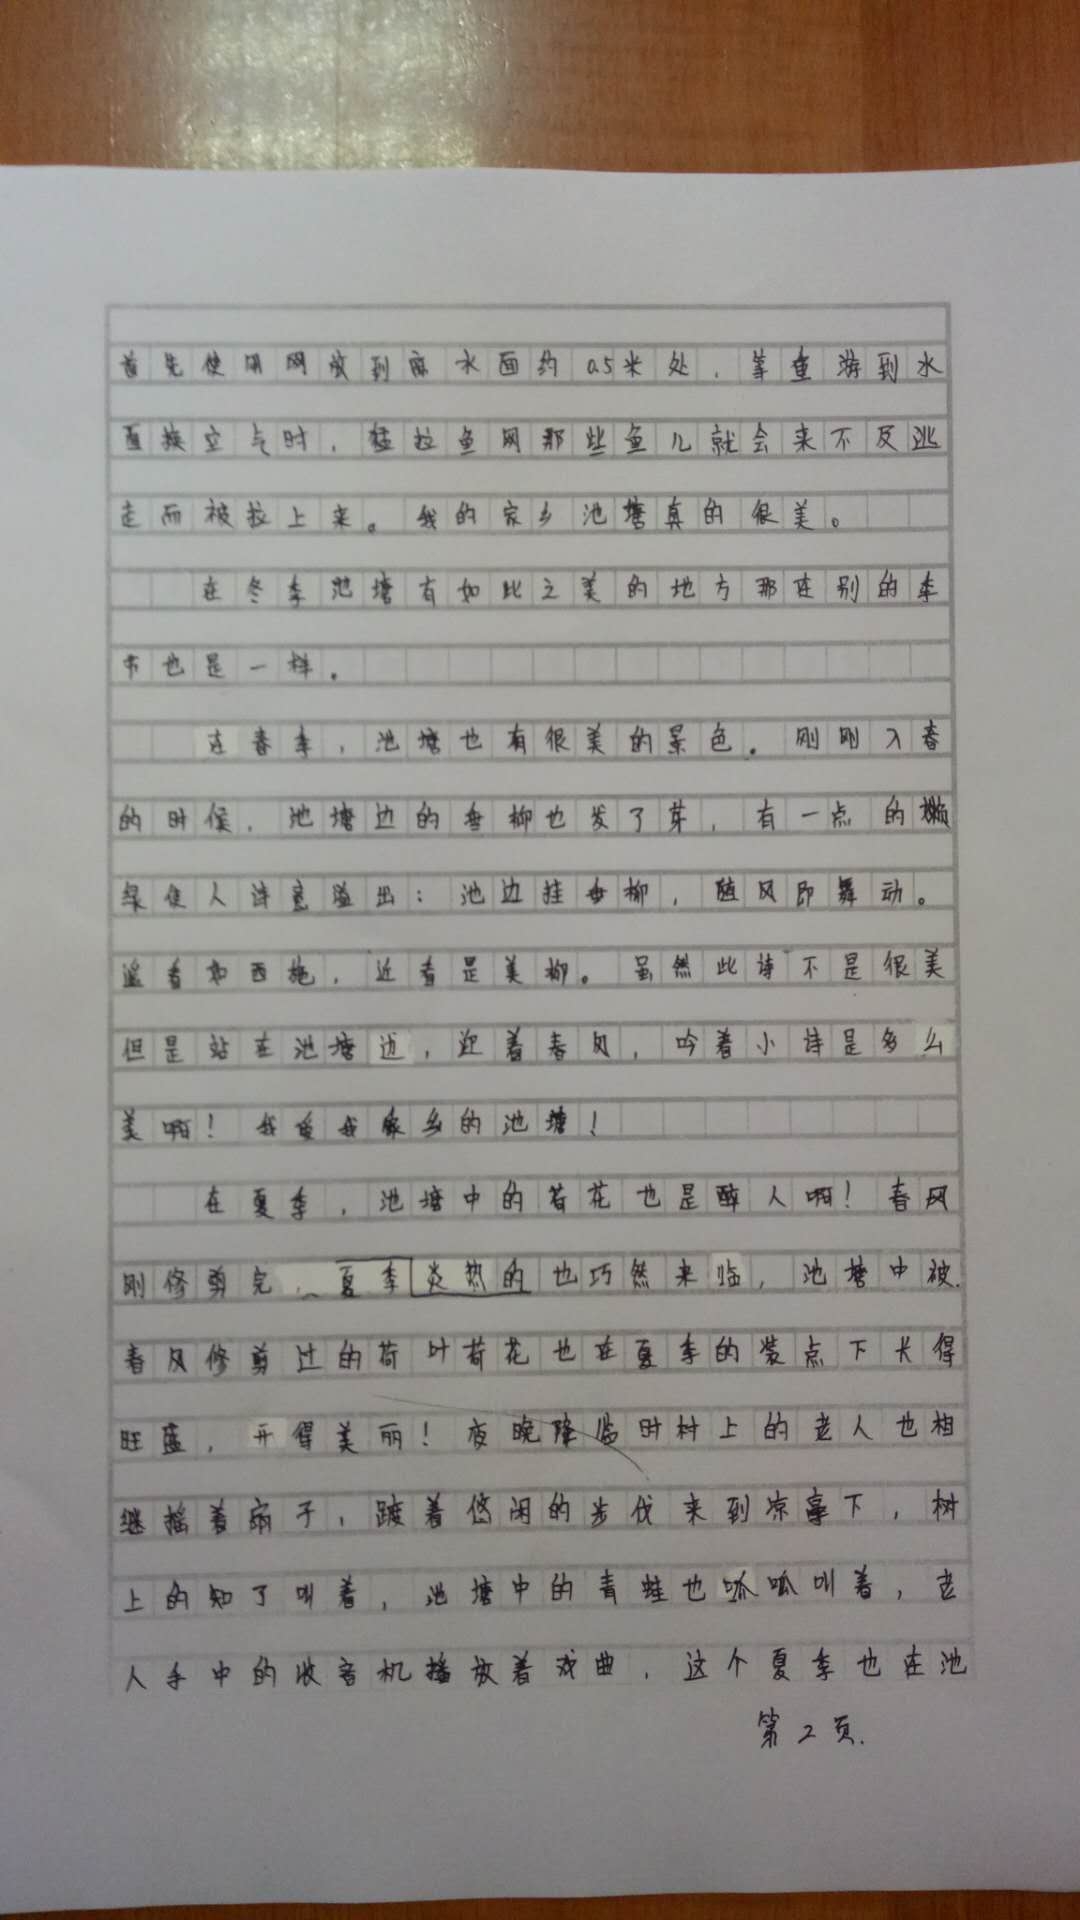 首先使用网放到离水面约0.5米处，等鱼游到水
面换空气时，猛拉鱼网那些鱼儿就会来不及逃
走而被拉上来。我的家乡池塘真的很美。
在冬季池塘有如此之美的地方那在别的季
节也是一样。
在春季，池塘也有很美的景色。刚刚入春
的时候，池塘边的垂柳也发了芽，有一点的嫩
绿使人诗意溢出：池边挂垂柳，随风即舞动。
遥看如西施，近看是美柳。虽然此诗不是很美
但是站在池塘边，迎着春风，吟着小诗是多么
美啊！我爱我家乡的池塘！
在夏季，池塘中的荷花也是醉人啊！春风
刚修剪完，夏季炎热的也巧然来临，池塘中被
春风修剪过的荷叶荷花也在夏季的装点下长得
旺盛，开得美丽！夜晚降临时村上的老人也相
继摇着扇子，踱着悠闲的步伐来到凉亭下，树
上的知了叫着，池塘中的青蛙也呱呱叫着，老
人手中的收音机播放着戏曲，这个夏季也在池
第2页.